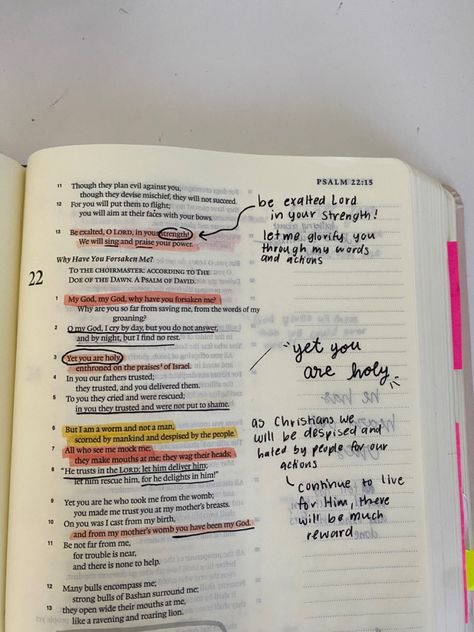 PSALM 22:15
11 Though they plan evil against you,
though they devise mischief, they will not succeed.
12 For you will put them to flight;
you will aim at their faces with your bows.
13 Be exalted, O LORD, in your strength!
We will sing and praise your power.
be exalted Lord
in your strength!
let me glorify you
through my words
and actions
Why Have You Forsaken Me?
22
TO THE CHOIRMASTER: ACCORDING TO THE
DOE OF THE DAWN. A PSALM OF DAVID.
1 My God, my God, why have you forsaken me?
Why are you so far from saving me, from the words of my
groaning?
2 O my God, I cry by day, but you do not answer,
and by night, but I find no rest.
3 Yet you are holy,
enthroned on the praises¹ of Israel.
4 In you our fathers trusted;
they trusted, and you delivered them.
5 To you they cried and were rescued;
in you they trusted and were not put to shame.
"yet you
are holy"
6 But I am a worm and not a man,
scorned by mankind and despised by the people.
7 All who see me mock me;
they make mouths at me; they wag their heads;
8 "He trusts in the LORD; let him deliver him;
let him rescue him, for he delights in him!"
as Christians we
will be despised and
hated by people for our
actions
continue to live
for Him, there
will be much
reward
9 Yet you are he who took me from the womb;
you made me trust you at my mother's breasts.
10 On you was I cast from my birth,
and from my mother's womb you have been my God.
11 Be not far from me,
for trouble is near,
and there is none to help.
12 Many bulls encompass me;
strong bulls of Bashan surround me;
13 they open wide their mouths at me,
like a ravening and roaring lion.